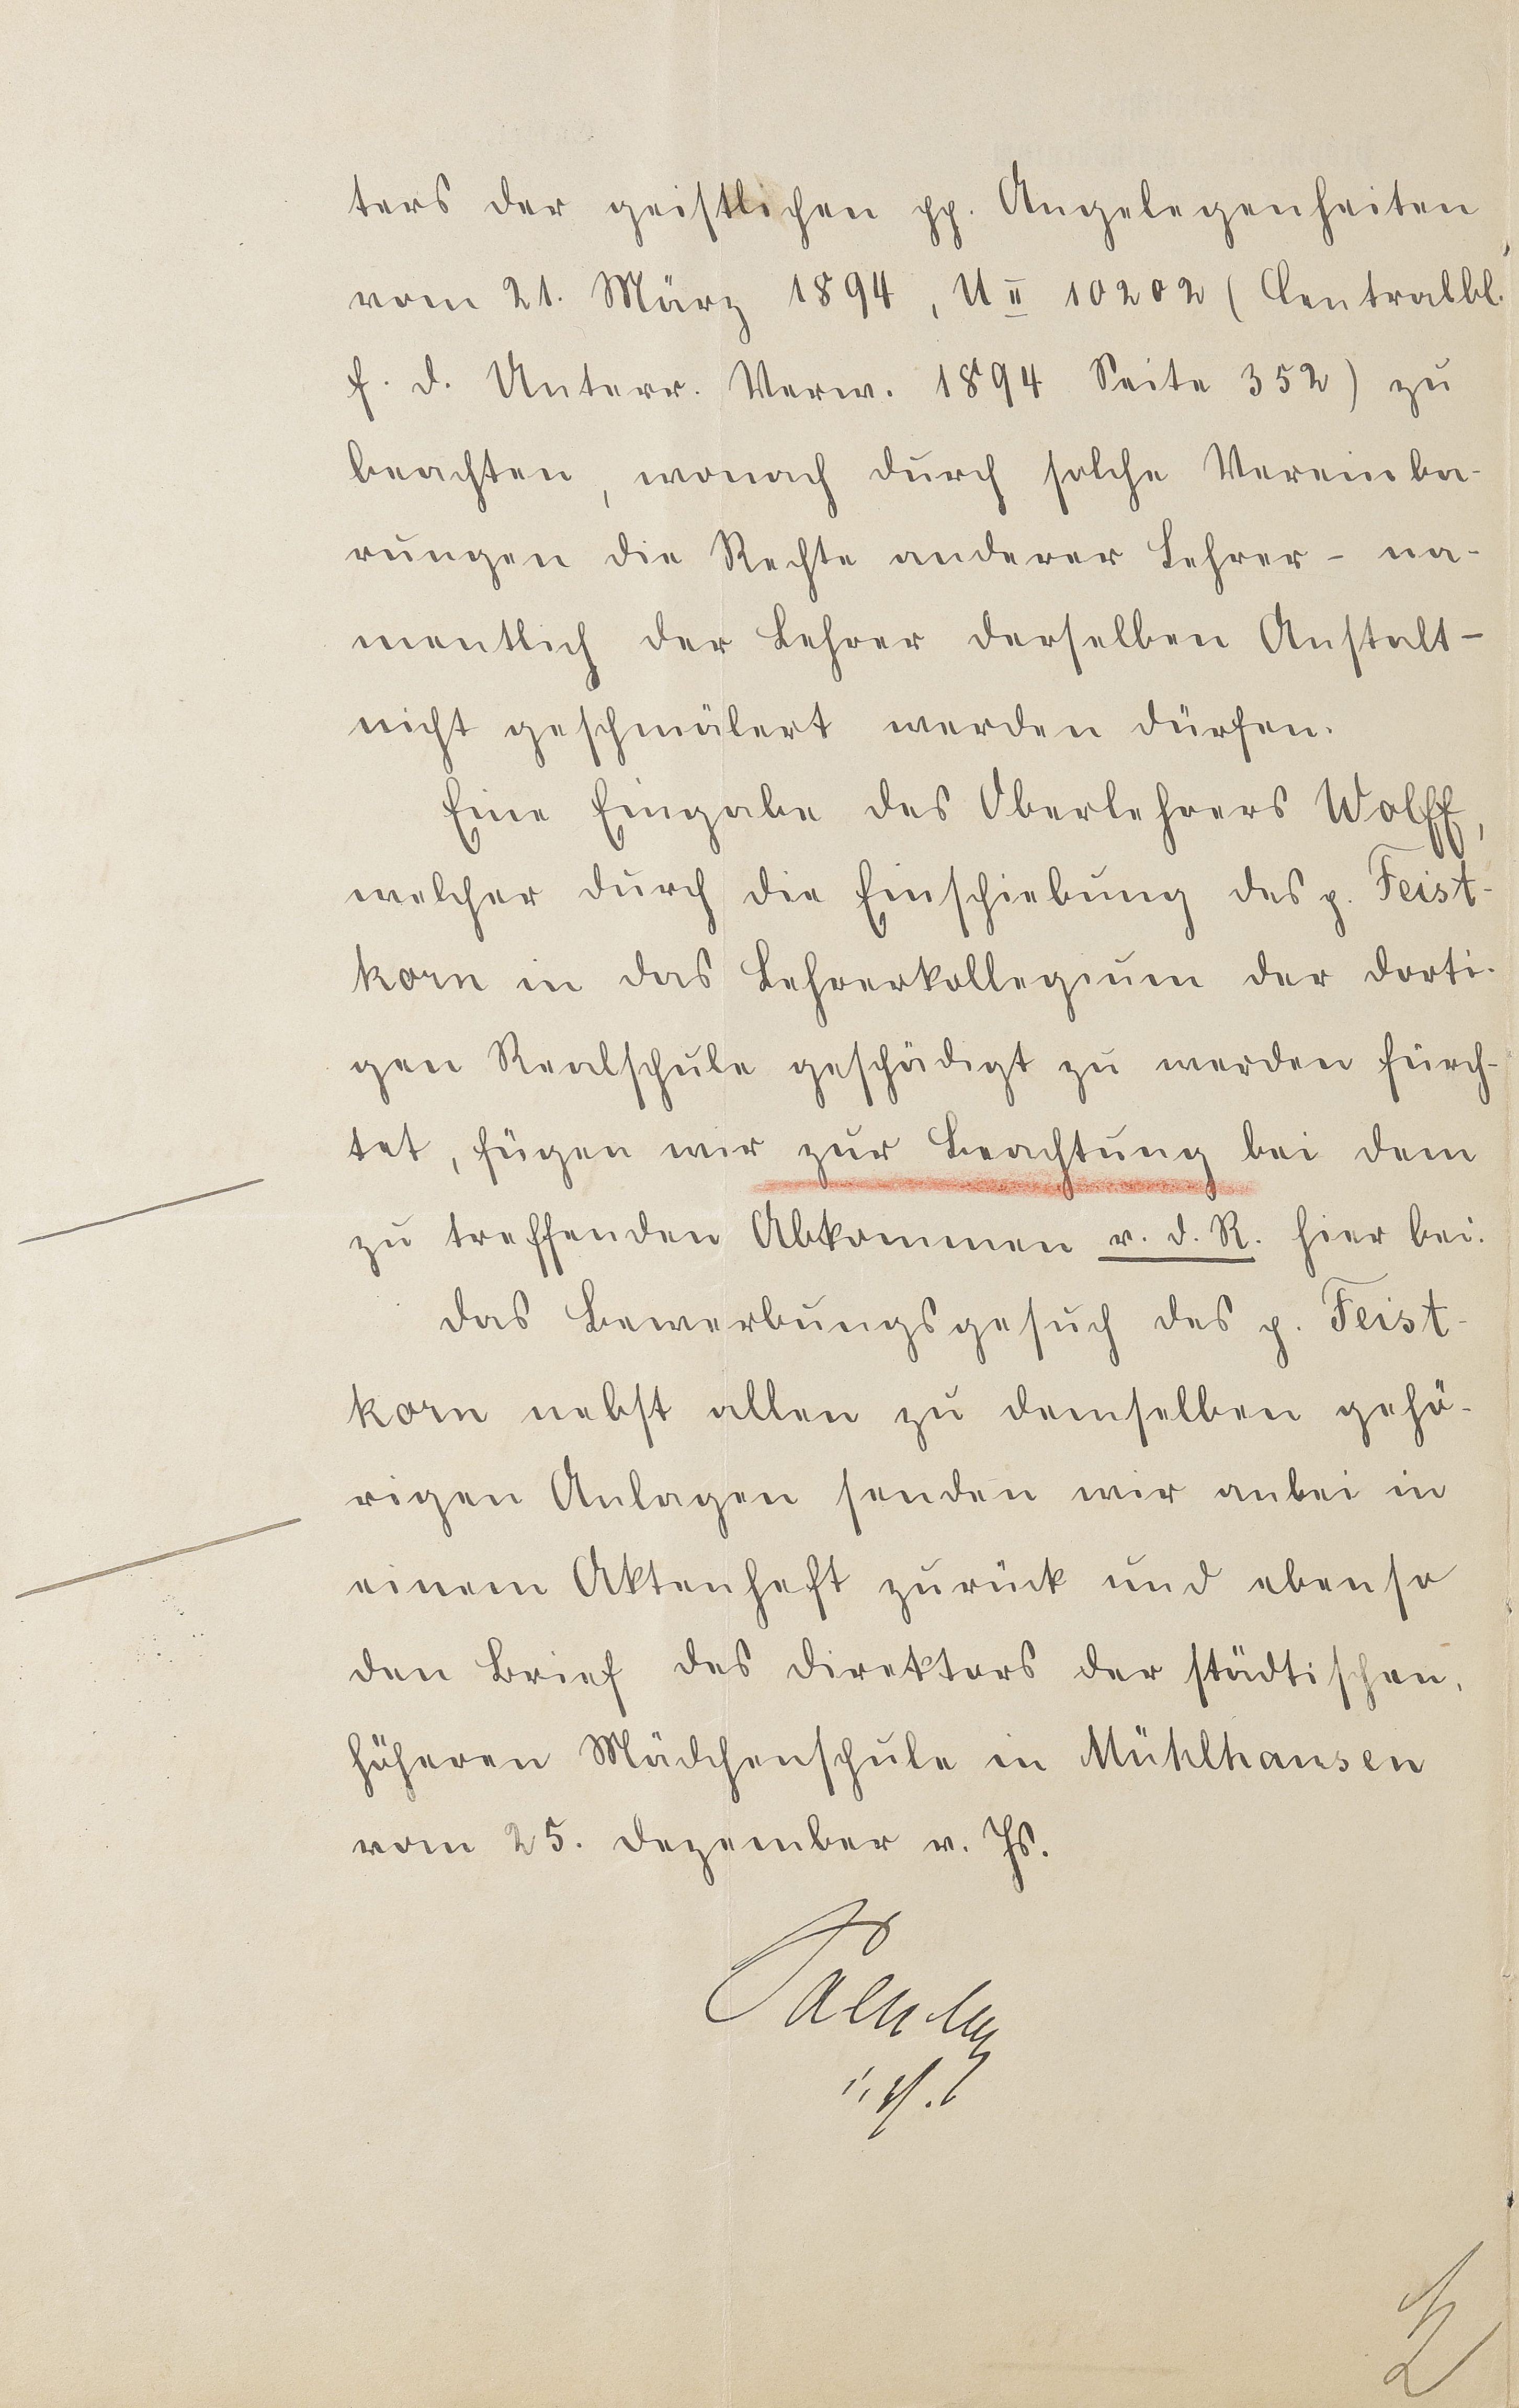 ters der geistlichen pp. Angelegenheiten
vom 21. März 1894, U II 10202 (Centralbl.
f. d. Unterr. Verw. 1894 Seite 352) zu
beachten, wonach durch solche Vereinba-
rungen die Rechte anderer Lehrer - na-
mentlich der Lehrer derselben Anstalt -
nicht geschmälert werden dürfen.
Eine Eingabe des Oberlehrers Wolff,
welcher durch die Einschiebung des p. Feist-
korn in das Lehrerkollegium der dorti-
gen Realschule geschädigt zu werden fürch-
tet, fügen wir zur Beachtung bei dem
zu treffenden Abkommen v. d. R. hier bei.
Das Bewerbungsgesuch des p. Feist-
korn nebst allen zu demselben gehö-
rigen Anlagen senden wir anbei in
einem Aktenheft zurück und ebenso
den Brief des Direktors der städtischen,
höheren Mädchenschule in Mühlhausen
vom 25. Dezember v. Js.